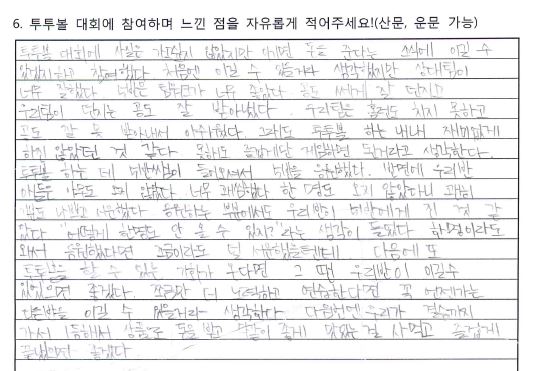 6. 투투볼 대회에 참여하며 느낀 점을 자유롭게 적어주세요!(산문, 운문 가능)
투투볼 대회에 사실은 가고싶지 않았지만 이기면 돈을 준다는 소식에 이길 수
있겠지하고 참여했다. 처음엔 이길 수 있을거라 생각했지만 상대팀이
너무 잘했다. 나반은 팀워크가 너무 좋았다 공도 세게 잘 던지고
우리팀이 던지는 공도 잘 받아냈다. 우리팀은 홈런도 치지 못하고
공도 잘 못 받아내서 아쉬웠다. 그래도 투투볼 하는 내내 재미없게
하진 않았던 것 같다. 못해도 즐겁게만 게임하면 된거라고 생각한다.
투투볼 하는 데 반 애들이 들어와서 반을 응원했다. 반면에 우리반
애들은 아무도 오지 않았다 너무 괘씸했다 한 명도 오지 않았다니 괜히
기분도 나쁘고 서운했다 응원하는 부분에서도 우리반이 에게 진 것 같
았다 "어떻게 한명도 안 올 수 있지?"라는 생각이 들었다 한명이라도
와서 응원했다면 조금이라도 덜 서운했을텐데 다음에 또
투투볼을 할 수 있는 기회가 주다면 그 땐 우리반이 이길수
있었으면 좋겠다. 조금만 더 노력하고 연습한다면 꼭 언젠가는
다른반을 이길 수 있을거라 생각한다. 다음번엔 우리가 결승까지
가서 1등해서 상품으로 돈을 받고 다같이 좋게 맛있는 걸 사먹고 즐겁게
끝났으면 좋겠다.